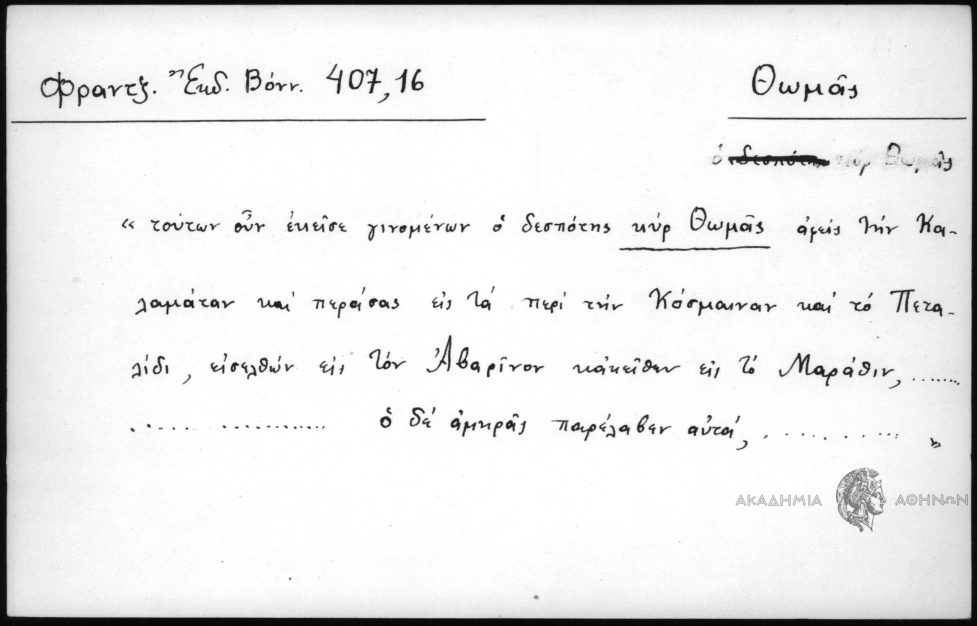 Φραντζ. Ἔκδ. Βόνν. 407,16
Θωμᾶς
ὁ δεσπότης κύρ Θωμᾶς
« τούτων οὖν ἐκεῖσε γινομένων ὁ δεσπότης κύρ Θωμᾶς ἀφείς τήν Κα-
λαμάταν καί περάσας εἰς τά περί τήν Κόσμαιναν καί τό Πετα-
λίδι, εἰσελθών εἰς τόν Ἀβαρῖνον κἀκεῖθεν εἰς τό Μαράθιν, ........
...... ............ ὁ δέ ἀμηρᾶς παρέλαβεν αὐτά, .......... »
ΑΚΑΔΗΜΙΑ ΑΘΗΝΩΝ